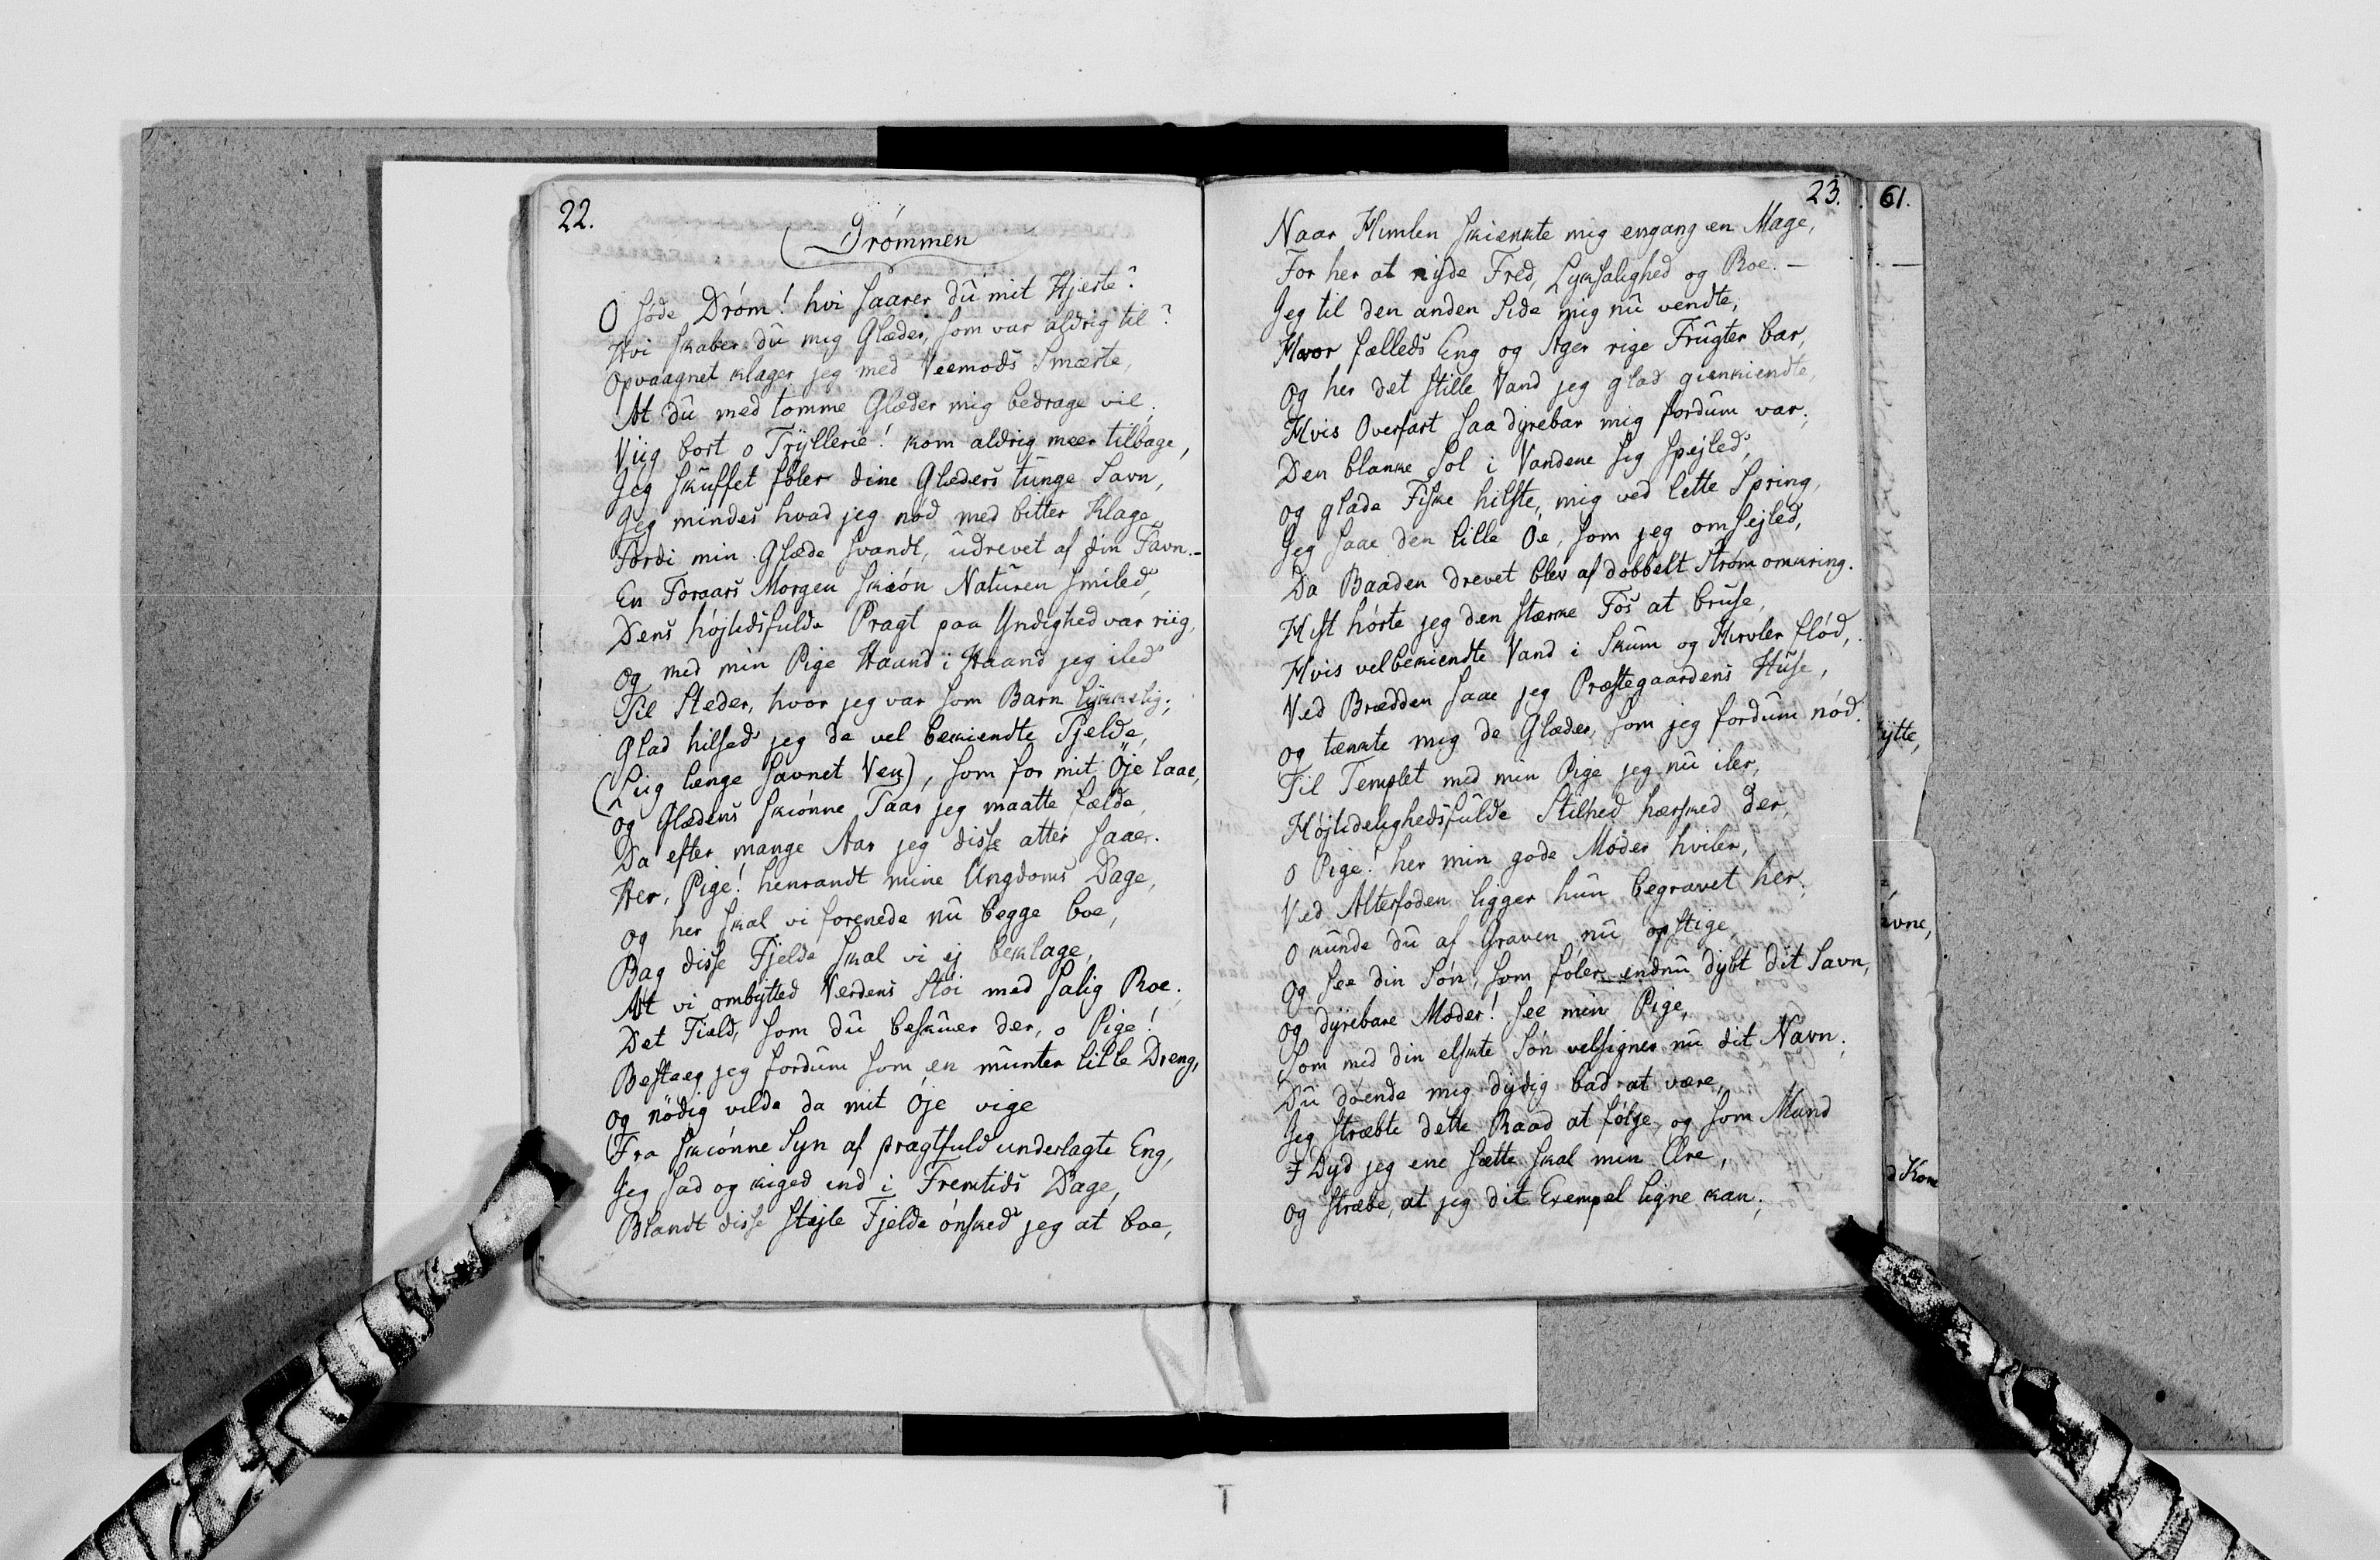 22.
Drömmen
O söde Dröm! hvi saarer du mit Hjerte?
Hvi skaber du mig Glæder, som var aldrig til?
Opvaagnet klager jeg med Veemods Smærte,
At du med tomme Glæder mig bedrage vil.
Viig bort o Tryllerie! kom aldrig meer tilbage,
Jeg skuffet föler dine Glæders tunge Savn,
Jeg mindes hvad jeg nöd med bitter Klage
Fordi min Glæde svandt, udrevet af din Favn.–
En Foraars Morgen skiön Naturen smiled,
Dens höjtidsfulde Pragt paa Yndighed var riig,
og med min Pige Haand i Haand jeg iled
Til Steder, hvor jeg var som Barn lykkelig;
Glad hilsed jeg de vel bekiendte Fjelde,
(Liig længe savnet Ven), som for mit Öje laae,
og Glædens skiönne Taar jeg maatte fælde,
Da efter mange Aar jeg disse atter saae.
Her, Pige! henrandt mine Ungdoms Dage,
og her skal vi forenede nu begge boe,
Bag disse Fjelde skal vi ej beklage,
At vi ombytted Verdens Stöi med salig Roe.
Det Field, som du beskuer der, o Pige!
Besteeg jeg fordum som en munter lille Dreng,
og nödig vilde da mit Öje vige
Fra skiönne Syn af pragtfuld underlagte Eng,
Jeg sad og kiged ind i Fremtids Dage,
Blandt disse stejle Fjelde önsked jeg at boe,
23.
Naar Himlen skienkte mig engang en Mage,
For her at nyde Fred, Lyksalighed og Roe. –
Jeg til den anden Side mig nu vendte,
Hvor fælleds Eng og Ager rige Frugter bar,
og her det stille Vand jeg glad gienkiendte,
Hvis Overfart saa dyrebar mig fordum var;
Den blanke Sol i Vandene sig spejled,
og glade Fiske hilste, mig ved lette Spring,
Jeg saae den lille Öe, som jeg omsejled,
Da Baaden drevet blev af dobbelt Ström omkring.
Hist hörte jeg den stærke Fos at bruse,
Hvis velbekiendte Vand i Skum og Hvirvler flöd,
Ved Bredden saae jeg Præstegaardens Huse,
og tænkte mig de Glæder, som jeg fordum nöd.
Til Templet med min Pige jeg nu iler,
Höjtidelighedsfulde Stilhed hersked der,
o Pige! her min gode Moder hviler,
Ved Alterfoden ligger hun begravet her.
o kunde du af Graven nu opstige,
og see din Sön, som föler endnu dybt dit Savn,
og dyrebare Moder! see min Pige,
Som med din elskte Sön velsigner nu dit Navn.
Du döende mig dydig bad at være,
Jeg stræbte dette Raad at fölge, og som Mand
I Dyd jeg ene sætte skal min Ære,
og stræbe, at jeg dit Exempel ligne kan;
61.
ytte,
avne,